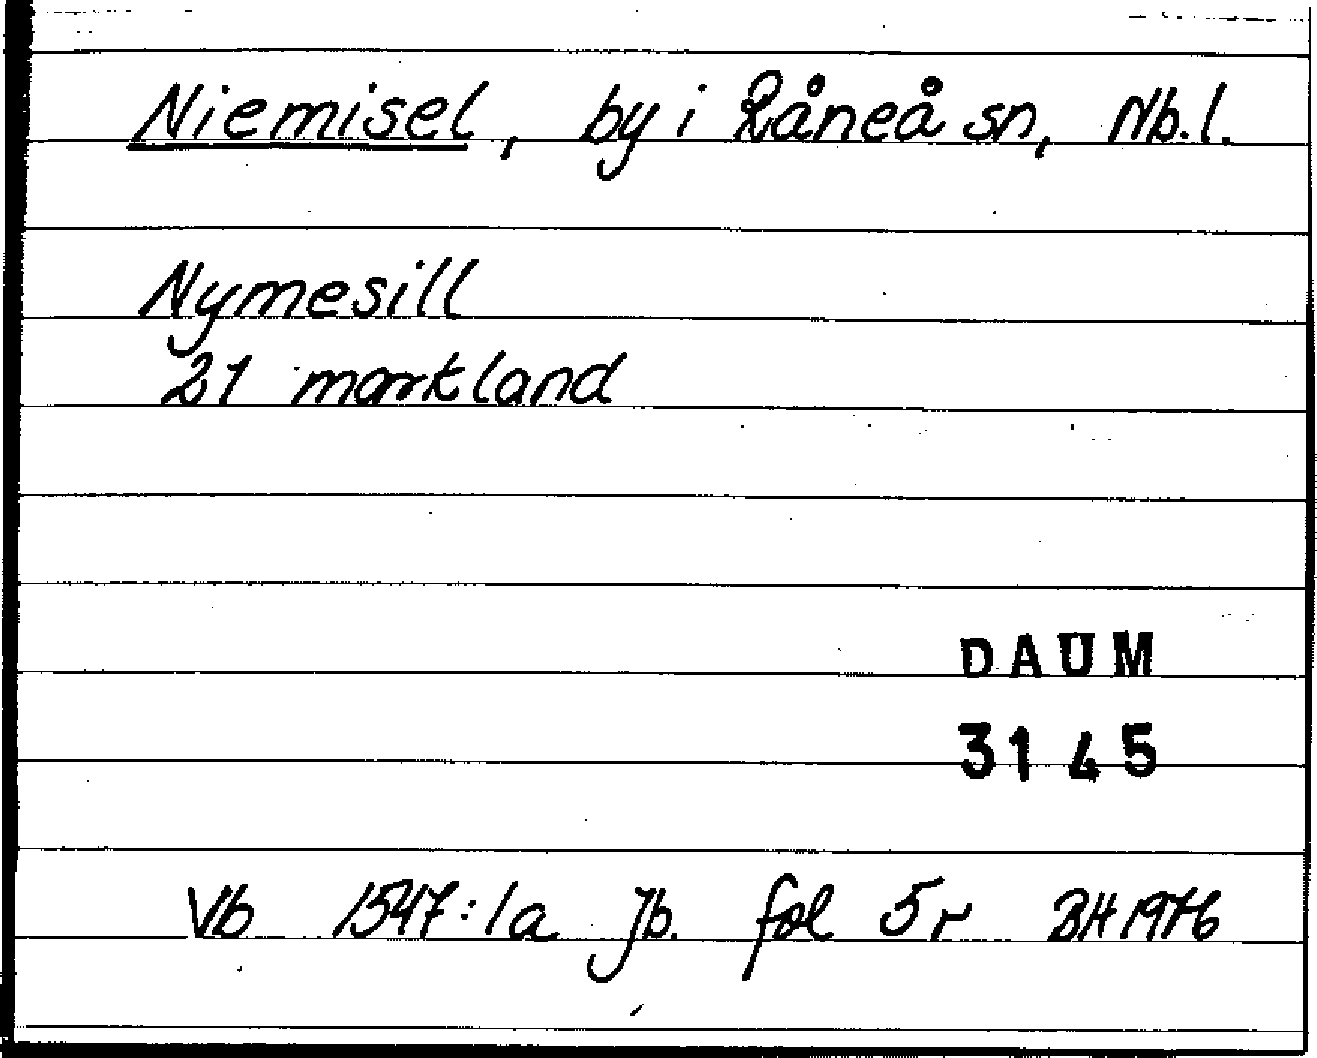 Niemisel, by i Råneå sn, Nb.l.
Nymesill
21 markland
DAUM
3145
Vb 1547:1a Jb. fol 5r BH 1976